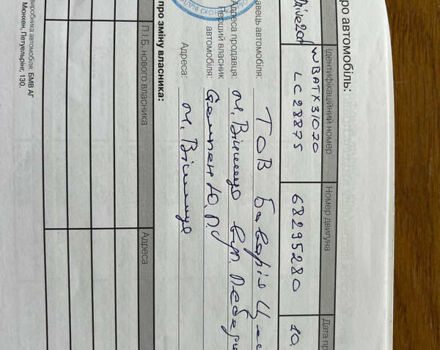 ро автомобіль:
Ідентифікаційний номер
Номер двигуна
Дата пр
xDrive20d
WBATX31070
LC28875
68295280
10,
авець автомобіля: ТОВ Баварія Це
Адреса продавця: м. Вінниця вул.
Перший власник
автомобіля: Ю.П.
Адреса: м. Вінниця
про зміну власника:
П.І.Б. нового власника
Адреса
иробника автомобіля: БМВ АГ
Мюнхен, Петуельрінг, 130.